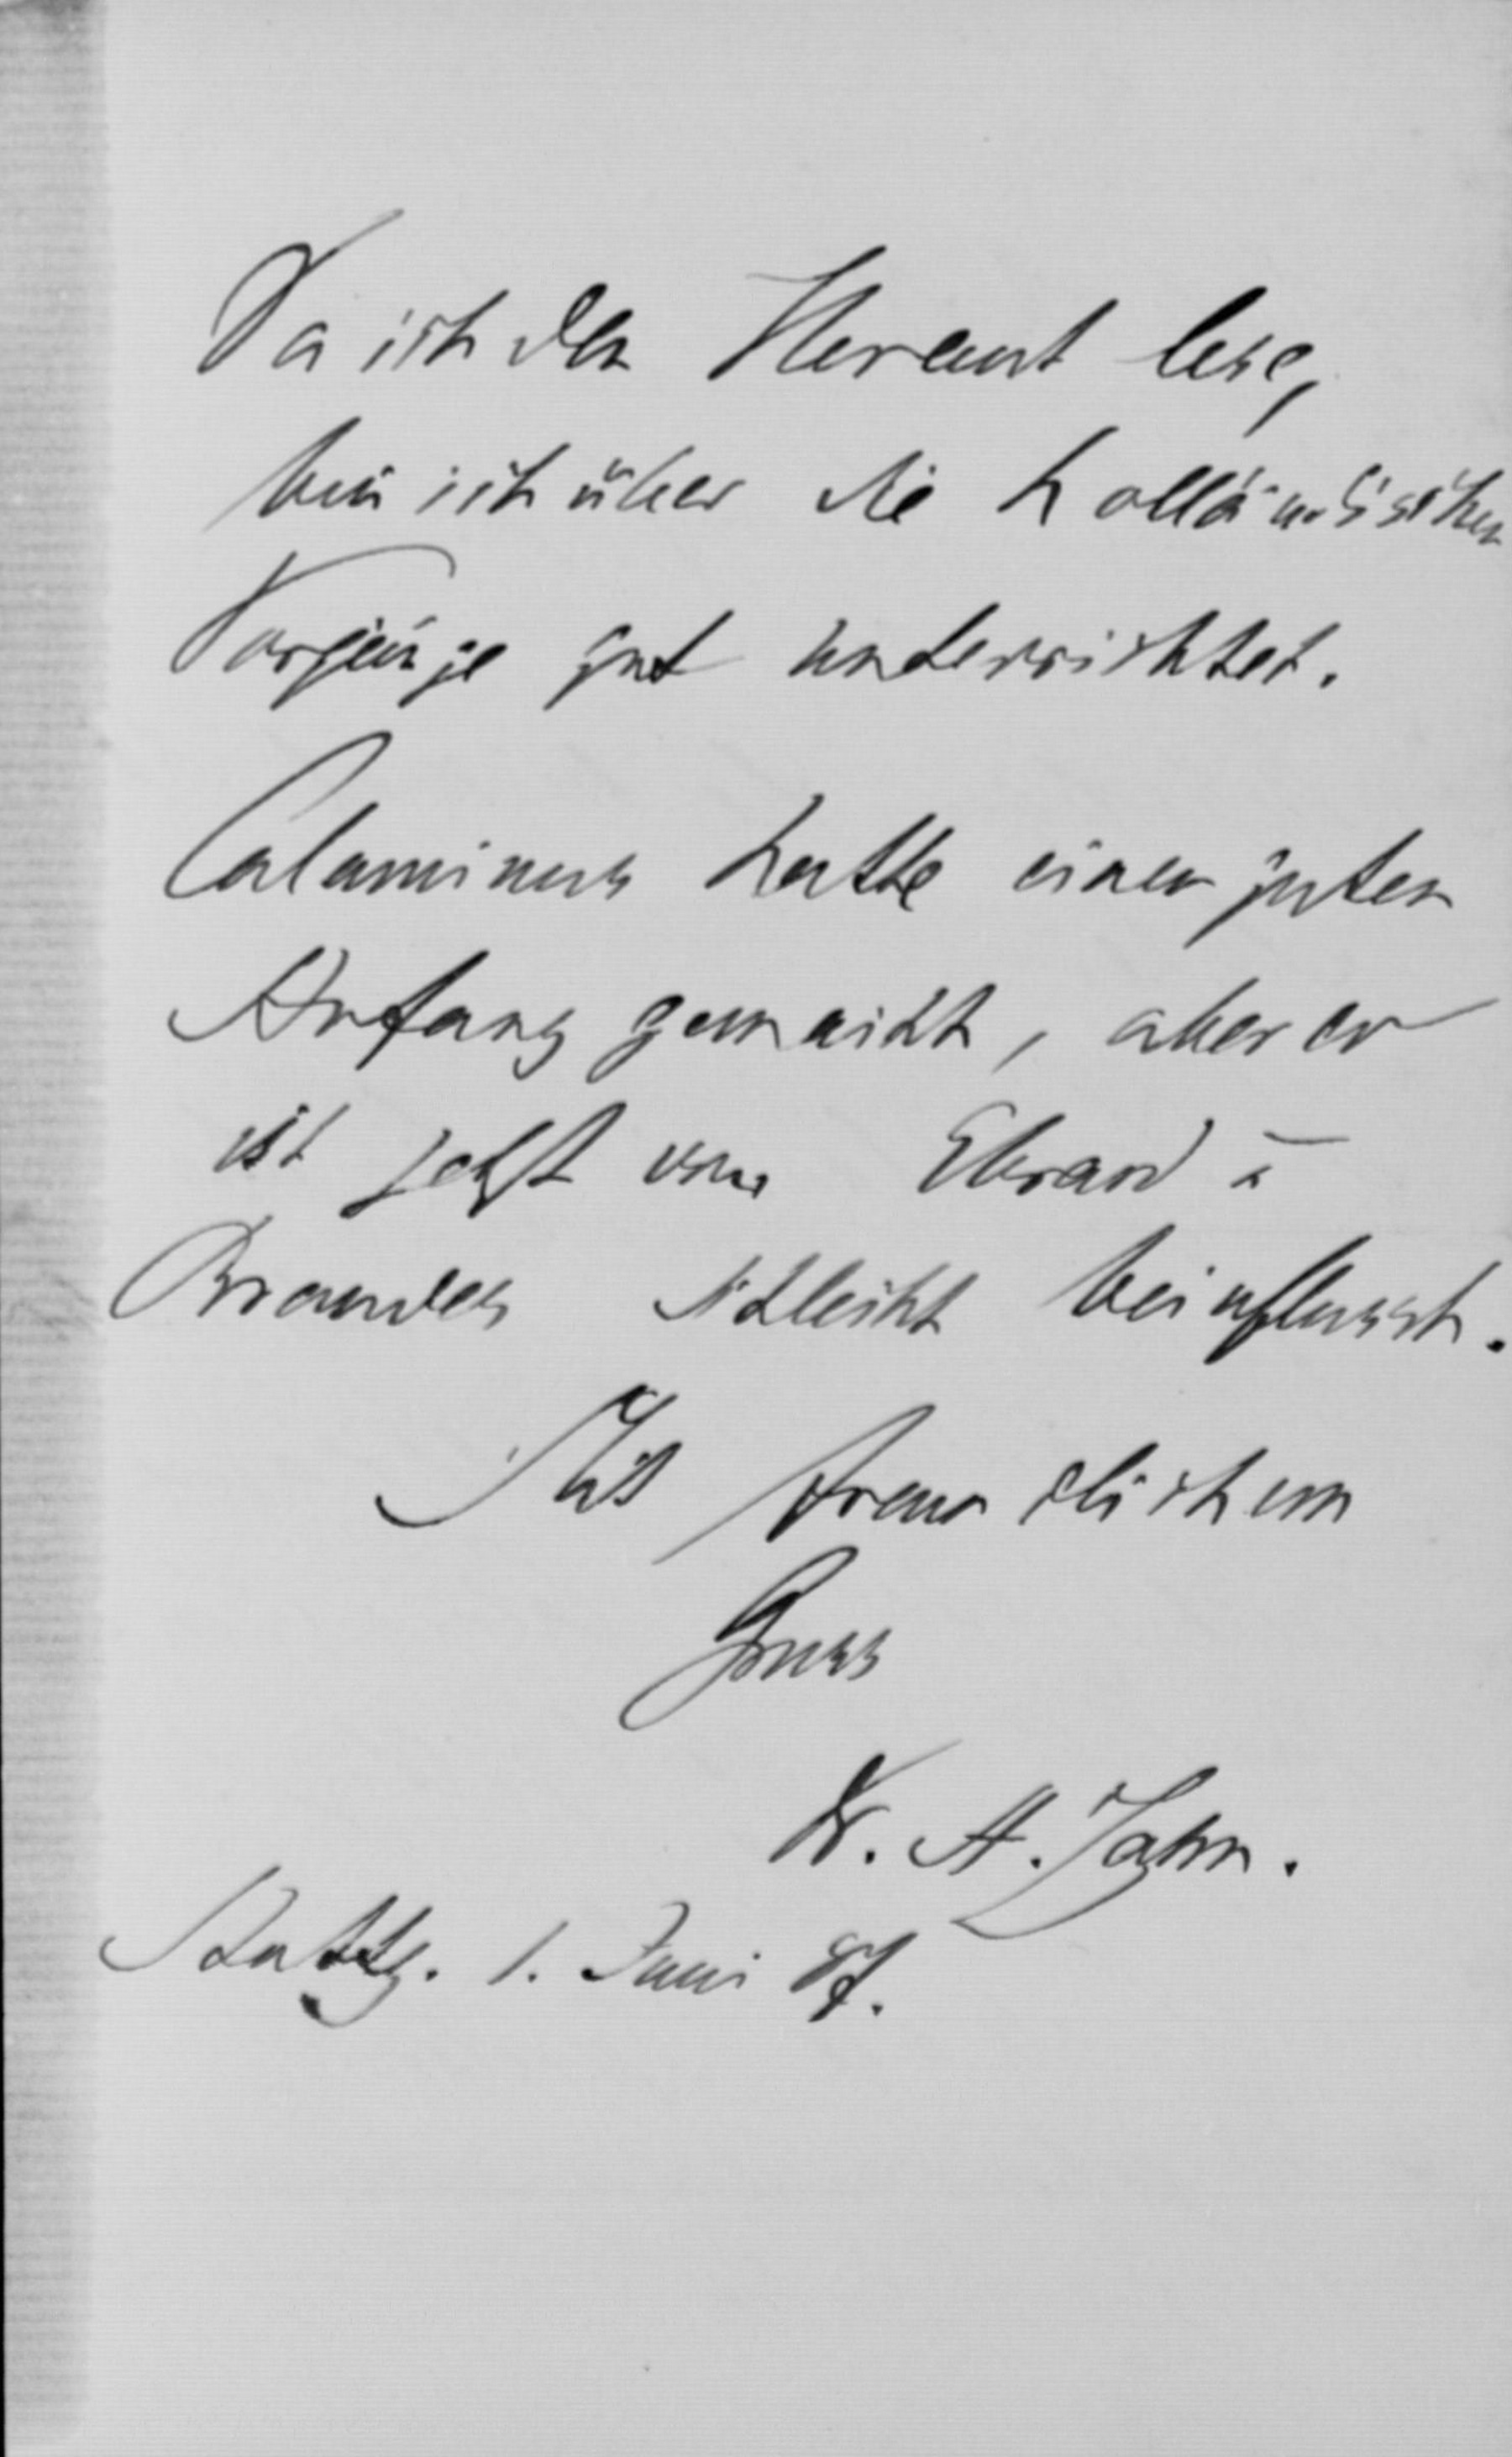 Da ich den Heraut lese,
bin ich über die holländischen
Vorgänge gut unterrichtet.
Calaminus hatte einen guten
Anfang gemacht, aber er
ist jetzt von Ebrard u
Brandes schlecht beinflusst.
Mit freundlichem
Gruss
Dr. A. Zahn.
Stuttg. 1. Juni 87.